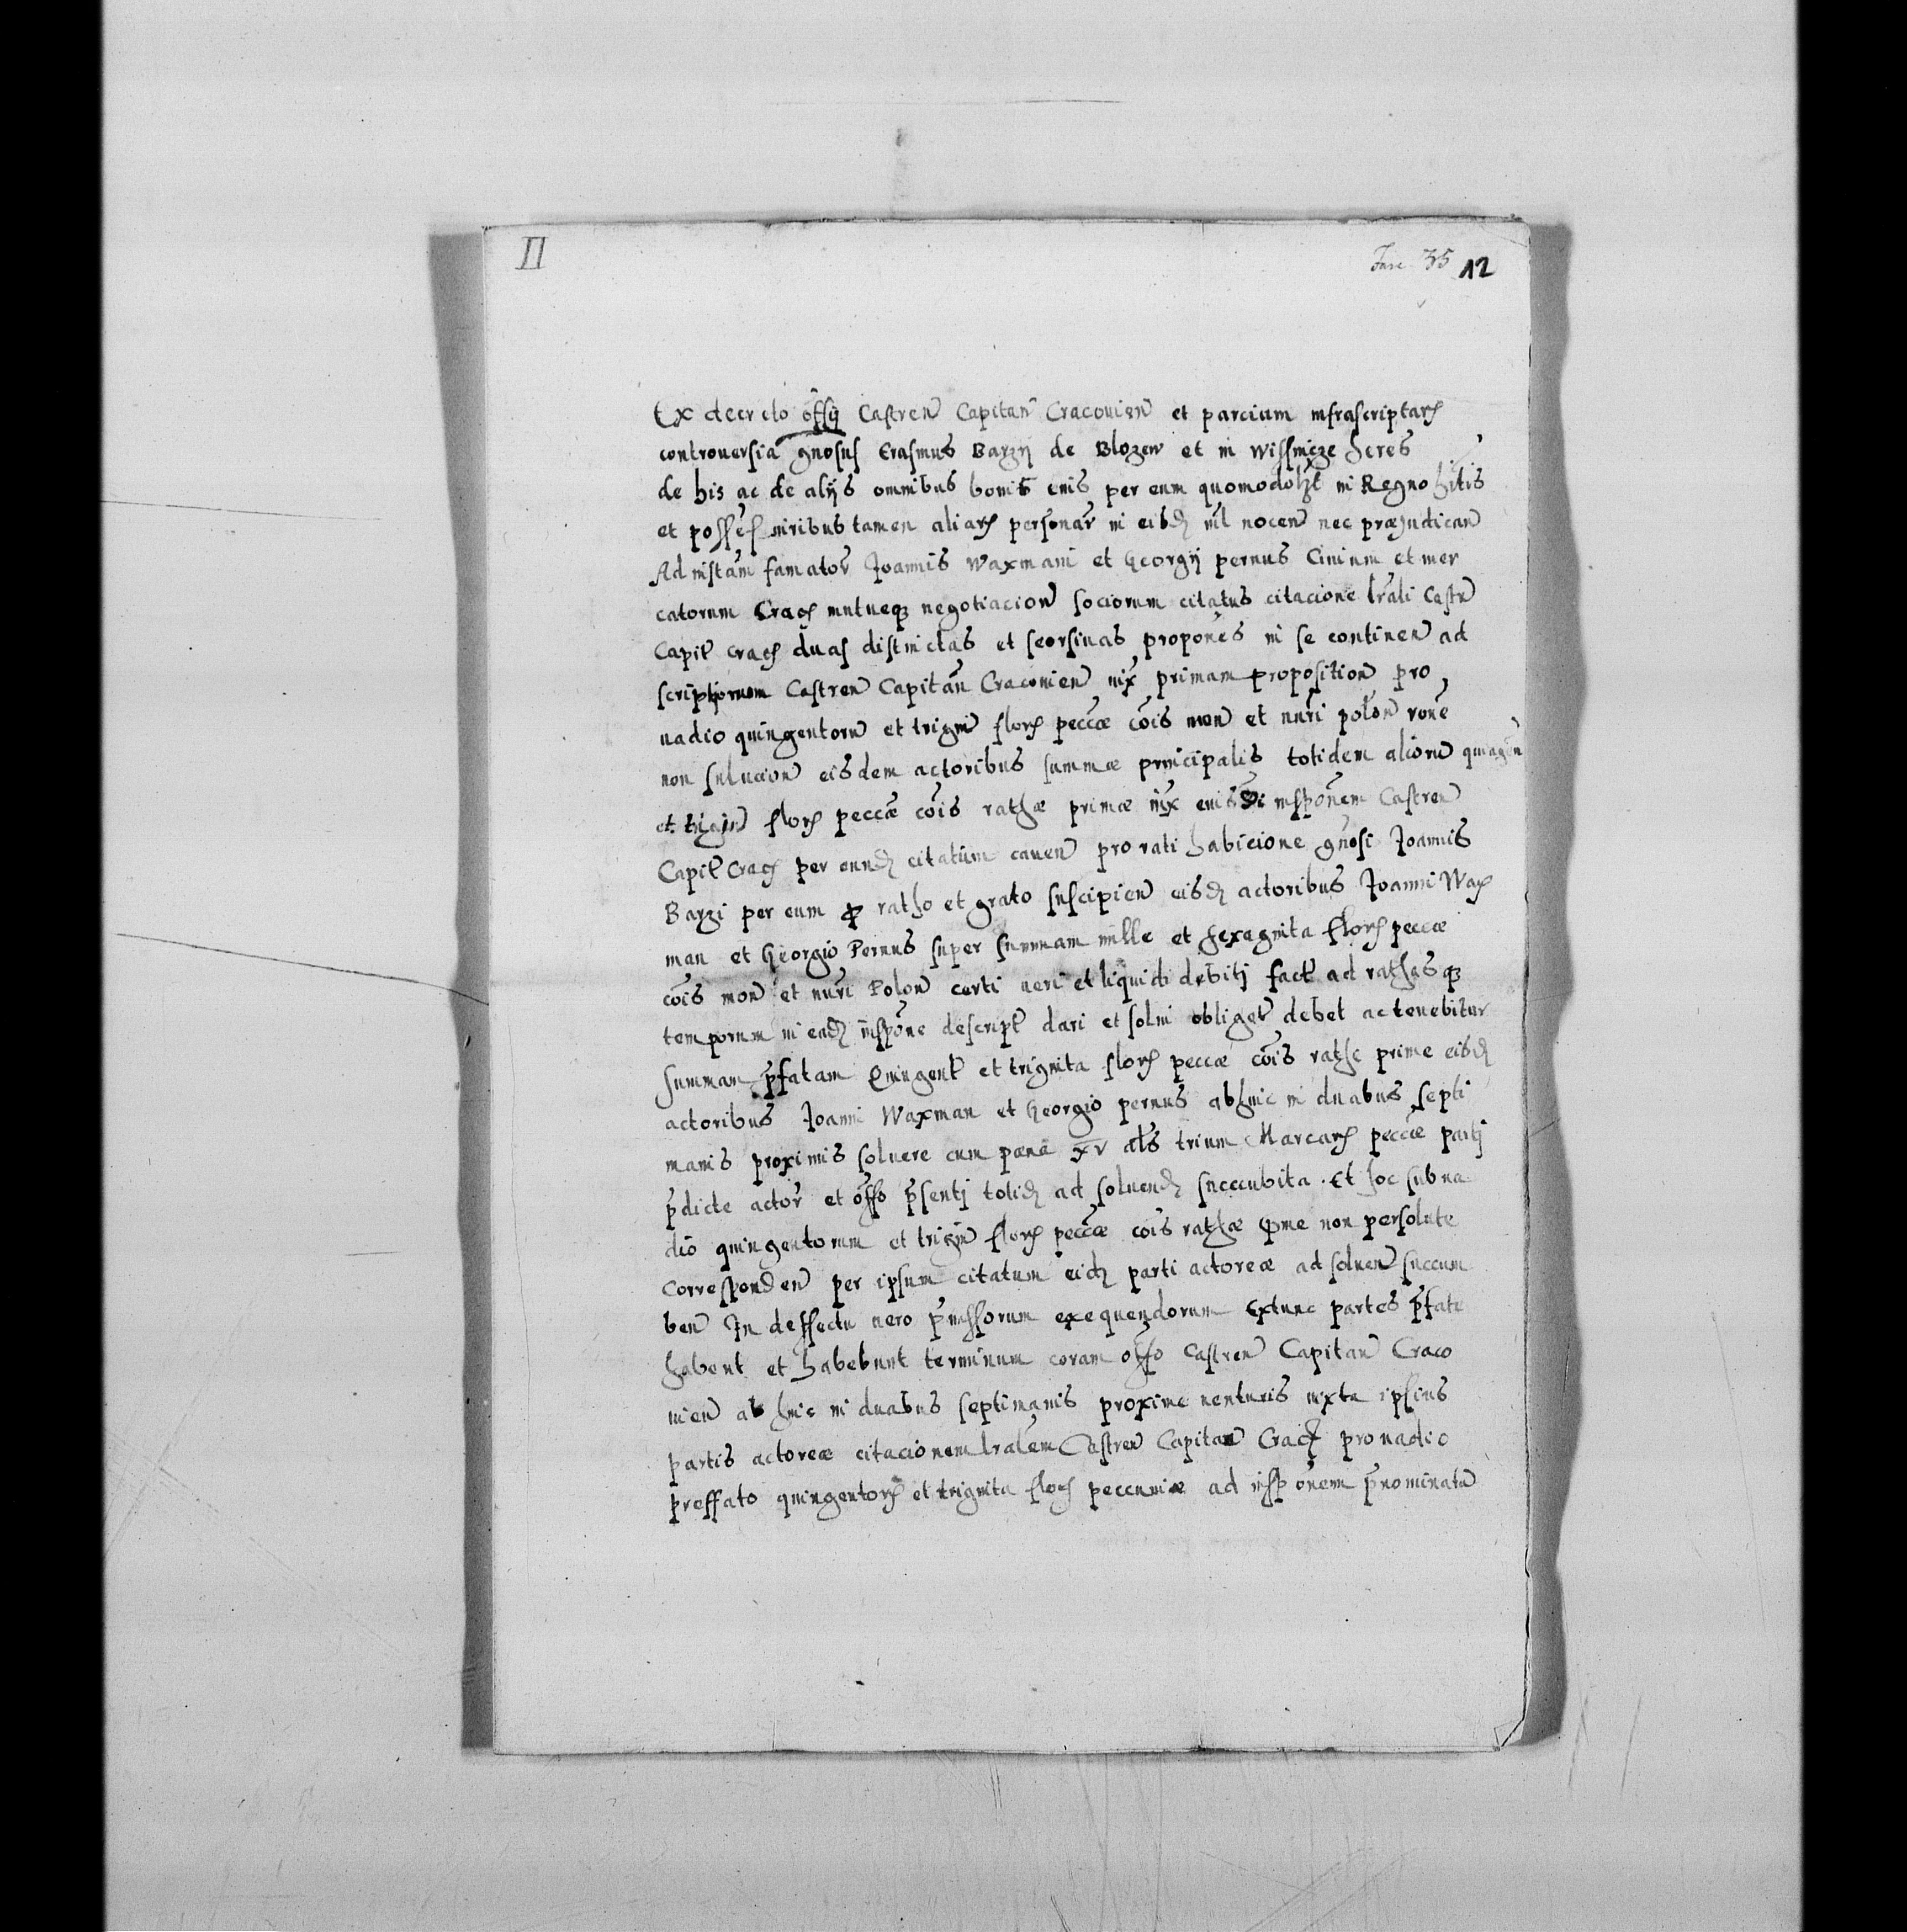 II
Fasc. 35 12
Ex decreto offij Castren Capitan Cracouien et parcium infrascriptar
controuersia gnosus Erasmus Barzy de Blozew et in Wissnicze heres
de his ac de alijs omnibus bonis eius per eum quomodolt in Regno hitis
et posses iuribus tamen aliar personar in eisd nil nocen nec præjudican
Ad instam famator Joannis Waxmani et Georgij pernus Ciuium et mer
catorum Crac mutueq negotiacion sociorum citatus citacione lrali Castr
Capit crac duas distinctas et seorsiuas propones in se continen ad
scriptionem Castren Capitan Cracouien iux primam proposition pro
uadio quingentoru et trigin flor peccæ cois mon et nuri polon rone
non solucion eisdem actoribus summæ principalis totidem alioru quingen
et trigin flor peccæ cois rathæ primæ iux eius insponem Castren
Capit Crac per eund citatum cauen pro rati habicione gnosi Joannis
Barzi per eum p ratho et grato suscipien eisd actoribus Joanni Wax
man et Georgio Pernus super summam mille et sexaginta flor peccæ
cois mon et nuri Polon certi ueri et liquidi debitj fact ad rathasq
temporum in ead inspone descript dari et solui obliget debet ac tenebitur
summam pfatam Quingent et triginta flor peccæ cois rathe prime eisd
actoribus Joanni Waxman et Georgio pernus abhinc in duabus septi
manis proximis soluere cum pæna xv als trium Marcar peccæ partj
pdicte actor et offo psentj totid ad soluend succubita. Et hoc sub ua
dio quingentorum et trigin flor peccæ cois rathæ pme non persolute
corresponden per ipsum citatum eid parti actoreæ ad soluen succum
ben In deffectu uero pmissorum exequendorum Extunc partes pfate
habent et habebunt terminum coram offo Castren Capitan Craco
uien ab hinc in duabus septimanis proxime uenturis iuxta ipsius
partis actoreæ citacionem lralem Castren Capitan Crac pro uadio
preffato quingentor et triginta flor pecuniæ ad insponem pnominata